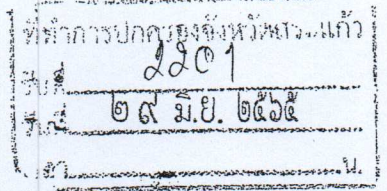 ที่ทำการปกครองจังหวัดสระแก้ว
รับที่ 2201
วันที่ ๒๙ มิ.ย. ๒๕๖๕
เวลา น.